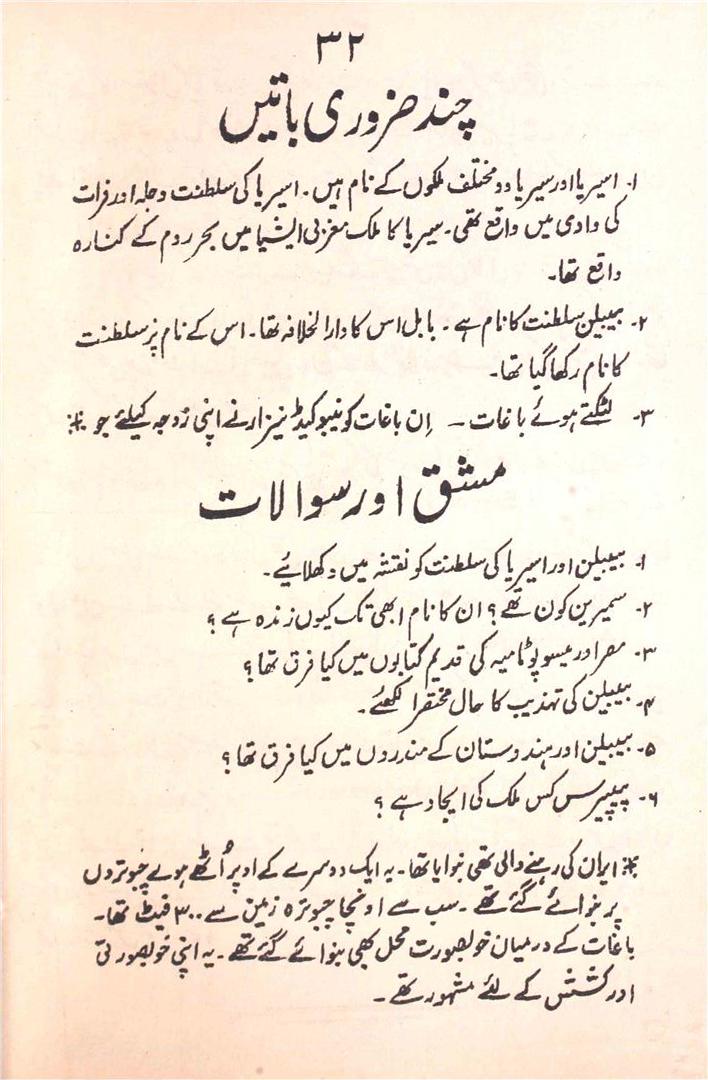 ۳۲
چند ضروری باتیں
۱۔ اسیریا اور سیریا دو مختلف ملکوں کے نام ہیں۔ اسیریا کی سلطنت دجلہ اور فرات
کی وادی میں واقع تھی۔ سیریا کا ملک مغربی ایشیا میں بحر روم کے کنارہ
واقع تھا۔
۲۔ بیبیلن سلطنت کا نام ہے۔ بابل اس کا دارالخلافہ تھا۔ اس کے نام پر سلطنت
کا نام رکھا گیا تھا۔
۳۔ لٹکتے ہوئے باغات ۔ اِن باغات کو نیبوکیڈ نیزار نے اپنی زوجہ کیلئے جو *
مشق اور سوالات
۱۔ بیبیلن اور اسیریا کی سلطنت کو نقشہ میں دکھلایئے۔
۲۔ سمیرین کون تھے؟ ان کا نام ابھی تک کیوں زندہ ہے؟
۳۔ مصر اور میسوپوٹامیہ کی قدیم کتابوں میں کیا فرق تھا؟
۴۔ بیبیلن کی تہذیب کا حال مختصراً لکھئے۔
۵۔ بیبیلن اور ہندوستان کے مندروں میں کیا فرق تھا؟
۶۔ پیپیرس کس ملک کی ایجاد ہے؟
* ایران کی رہنے والی تھی بنوایا تھا۔ یہ ایک دوسرے کے اوپر اُٹھے ہوے چبوتروں
پر بنوائے گئے تھے۔ سب سے اونچا چبوترہ زمین سے ۳۰۰ فیٹ تھا۔
باغات کے درمیان خوبصورت محل بھی بنوائے گئے تھے۔ یہ اپنی خوبصورتی
اور کشش کے لئے مشہور تھے۔